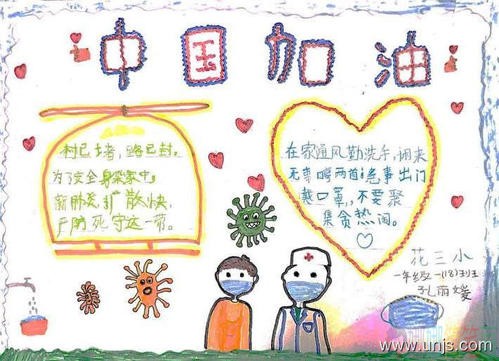 中国加油
村已堵，路已封。
为了安全家中。
新肺炎扩散快，
严防死守这一带。
在家通风勤洗手，闲来
无事唱两首急事出门
戴口罩，不要聚
集贪热闹。
花三小
一年级一(18)班
孔雨媛
www.unjs.com